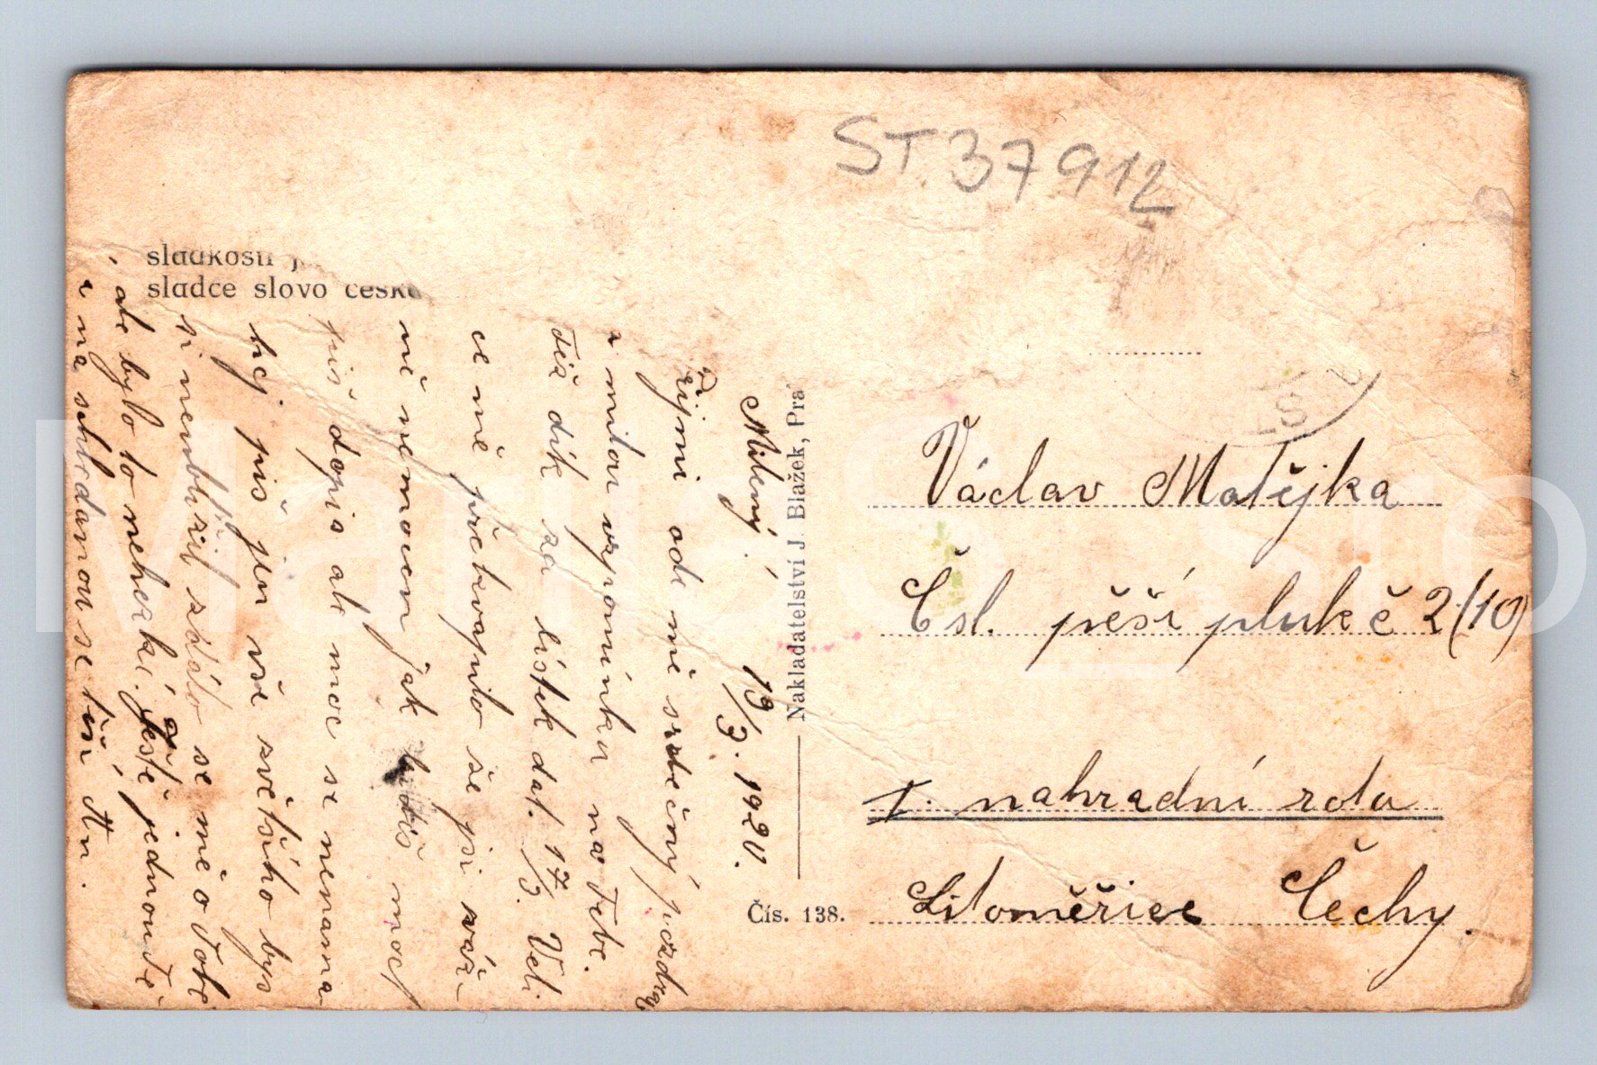 ST.37912
sladkosti
sladce slovo česk
Milený! 19/3. 1920.
Přijmi ode mě srdečný pozdrav
a milou vzpomínku na Tebe.
Též dík za lístek dat. 17/3. Veli
ce mě překvapilo že jsi váž
ně nemocen jak
píš dopis ale moc se nenama
hej piš jen vše světlého bys
si neublížil zdálo se mě o Tobě
ale bylo to nehezké. ještě jednou Tě
a na shledanou se těší
Nakladatelství J. Blažek, Pra
Čís. 138.
Václav Matějka
Čsl. pěší pluk č 2(10)
1. nahradní rota
Litoměřice Čechy.